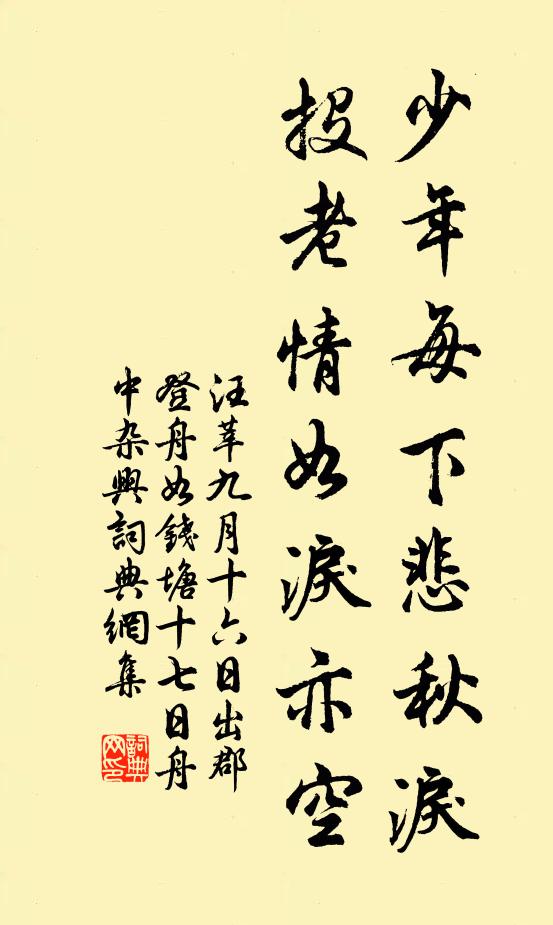 少年每下悲秋淚
投老情如淚亦空
汪莘九月十六日出郡
登舟如錢塘十七日舟
中杂興詞典網集
詞典
网印